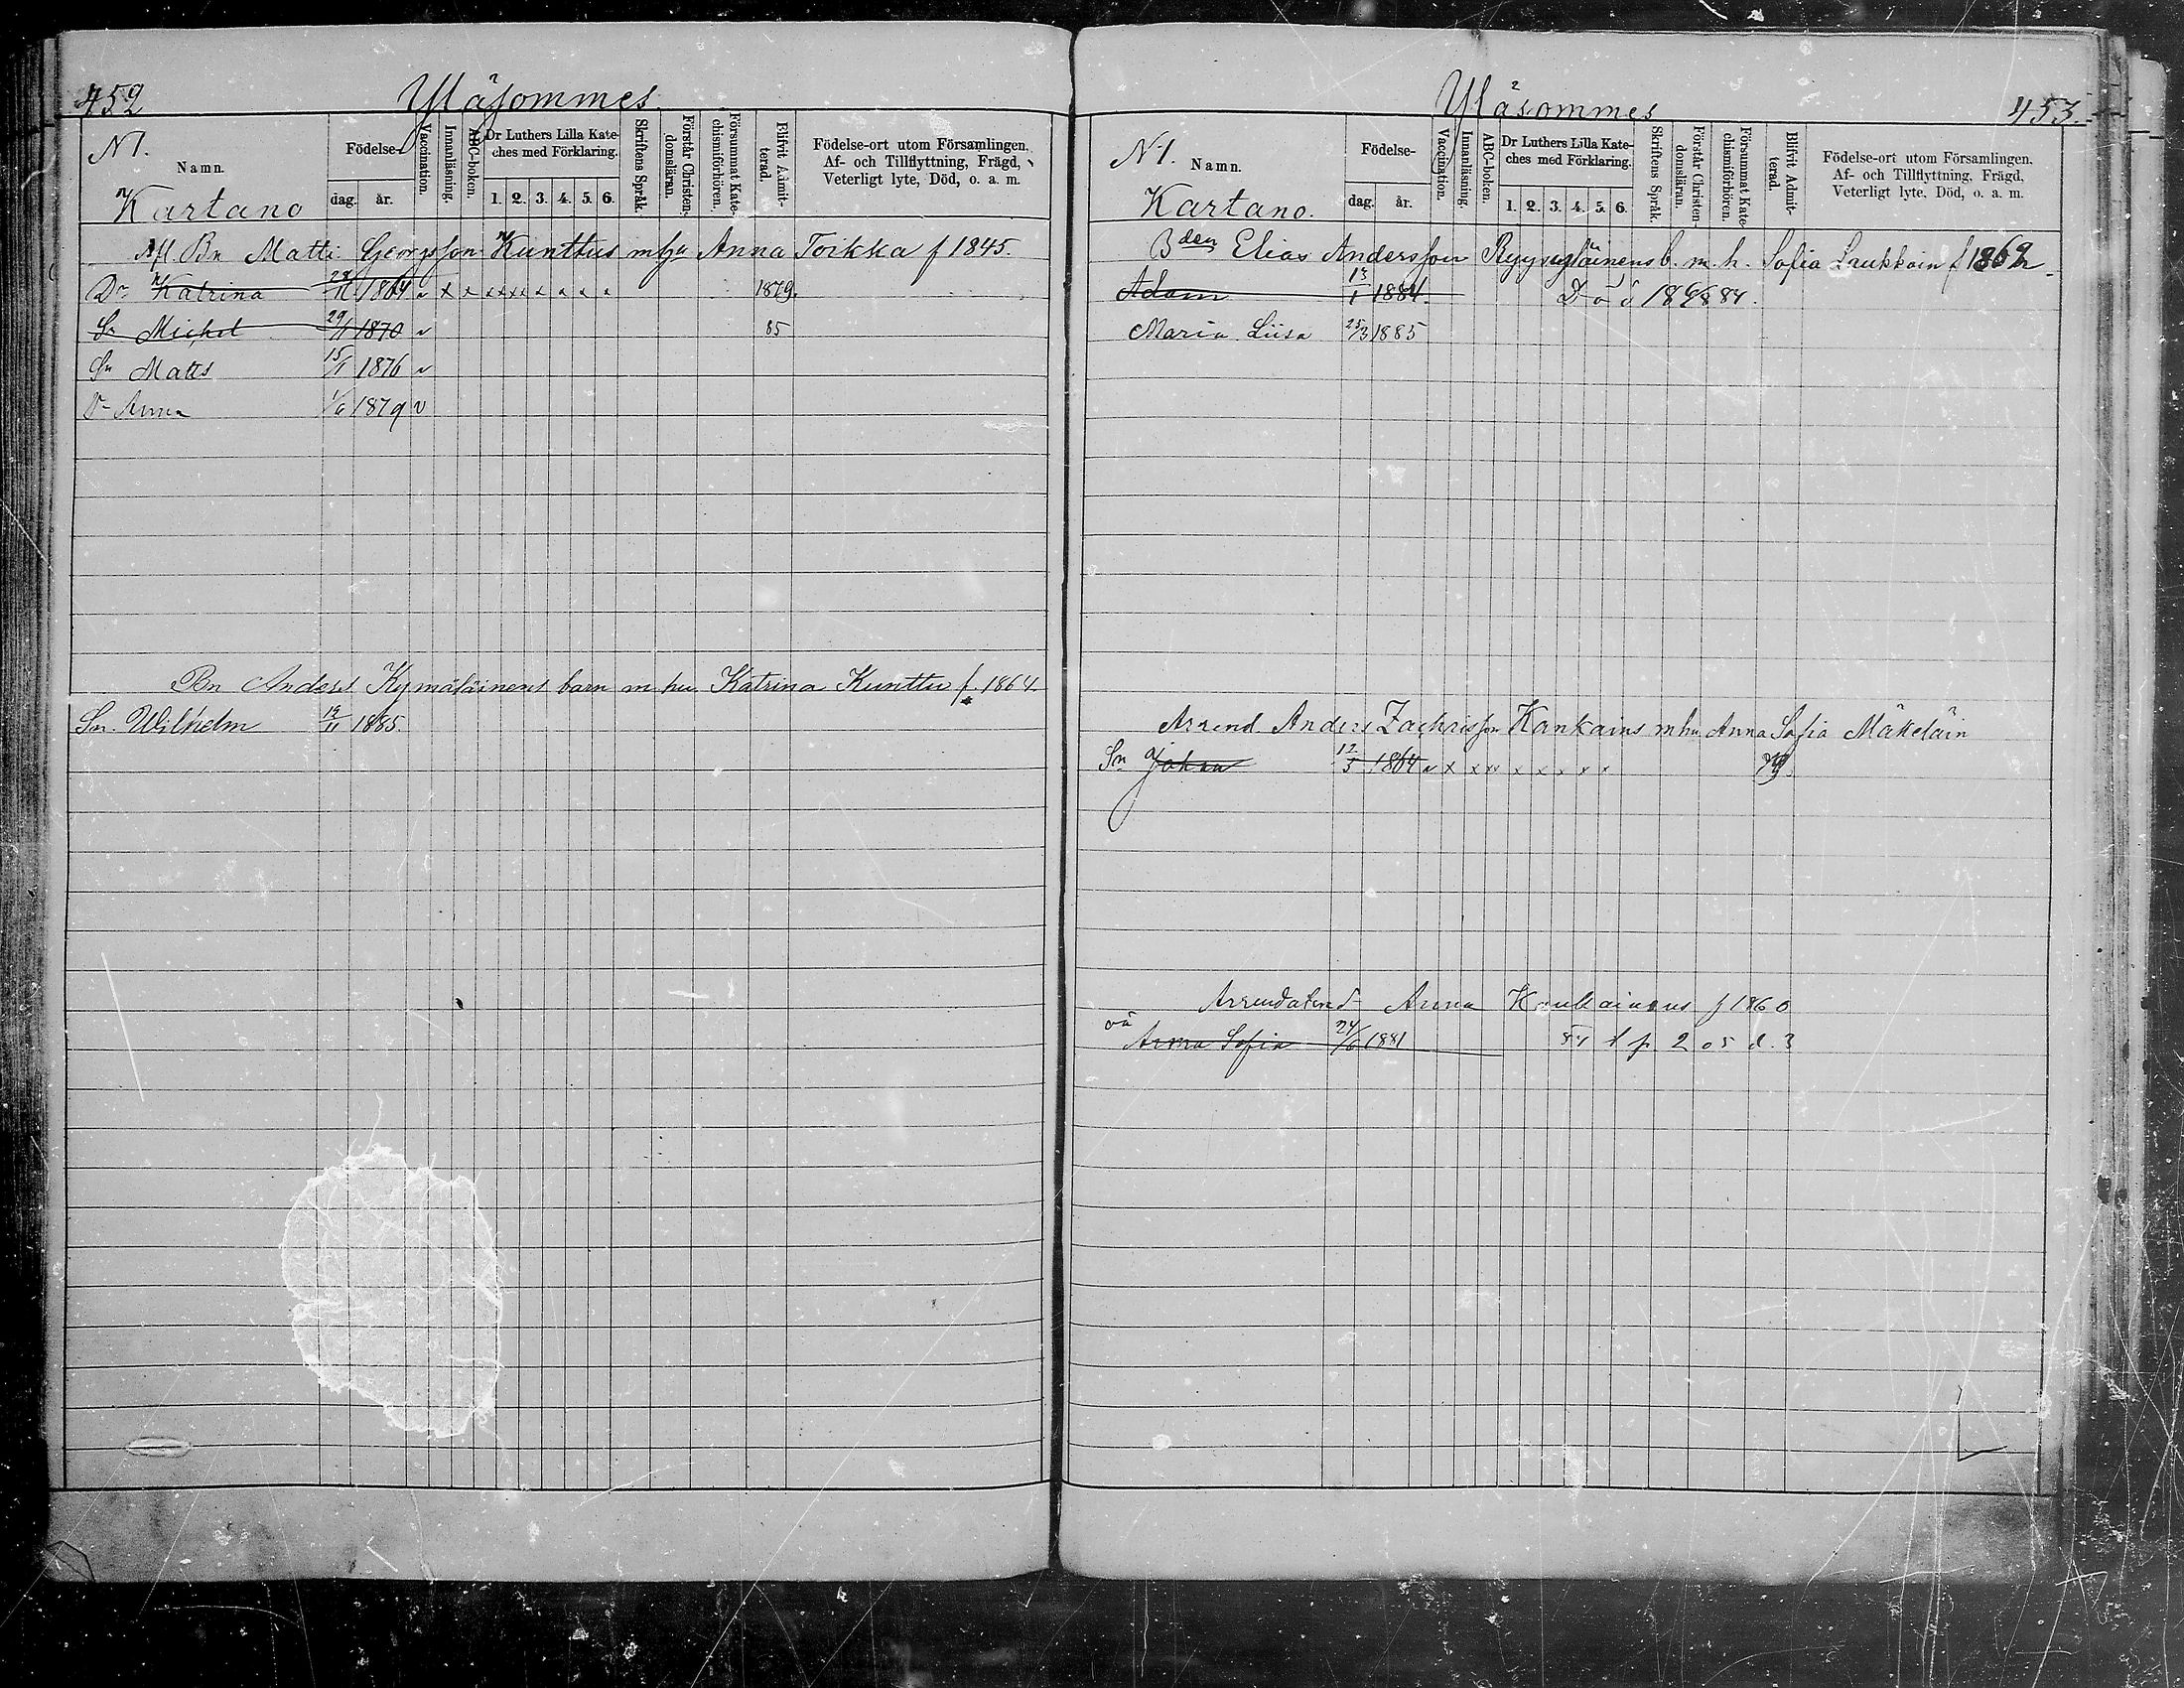 452
Yläsommes
N1.
Namn.
Kartano
Födelse-
dag.
år.
Vaccination.
Innanläsning.
ABC-boken.
Dr Luthers Lilla Kate-
ches med Förklaring.
1. 2. 3. 4. 5. 6.
Skriftens Språk.
Förstår Christen-
domsläran.
Försummat Kate-
chismiförhören.
Blifvit Admit-
terad.
Födelse-ort utom Församlingen.
Af- och Tillflyttning, Frägd,
Veterligt lyte, Död, o. a. m.
Afl. Bn Matti Georgsson Kunttus m hu Anna Toikka f 1845.
Dr Katrina 1864 v x x x x x x x x x x 1879.
Sn Michel 29/1 1870 v 85
Sn Matts 15/1 1876 v
Dr Anna 1/6 1879 v
Bn Anders Kymäläinens barn m hu Katrina Kunttu f. 1864.
Sn. Wilhelm 19/11 1885.
Yläsommes
453.
N1.
Namn.
Kartano.
Födelse-
dag.
år.
Vaccination.
Innanläsning.
ABC-boken.
Dr Luthers Lilla Kate-
ches med Förklaring.
1. 2. 3. 4. 5. 6.
Skriftens Språk.
Förstår Christen-
domsläran.
Försummat Kate-
chismiförhören.
Blifvit Admit-
terad.
Födelse-ort utom Församlingen.
Af- och Tillflyttning, Frägd,
Veterligt lyte, Död, o. a. m.
Bden Elias Andersson b. m. h. Sofia Laukkain f 1862
Adam 13/1 1884. Död 84.
Maria Liisa 25/3 1885
Arrend Anders Zachrisson Kankains m hu Anna Sofia Mäkeläin
Sn Johan 12/5 1864 v x x x x x x x x x x 79.
Anna f 1860
oä Anna Sofia 24/6 1881 t p 205 d. 3